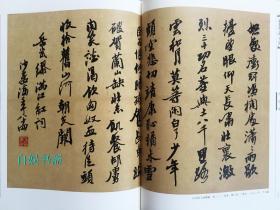 怒髮衝冠憑闌處瀟瀟雨歇
擡望眼仰天長嘯壯懷激
烈三十功名塵與土八千里路
雲和月莫等閒白了少年
頭空悲切靖康恥猶未雪
破賀蘭山缺壯志飢餐胡虜
肉笑談渴飲匈奴血待從頭
收拾舊山河朝天闕
岳武穆滿江紅詞
沙孟海
自娱书斋
自娱书斋